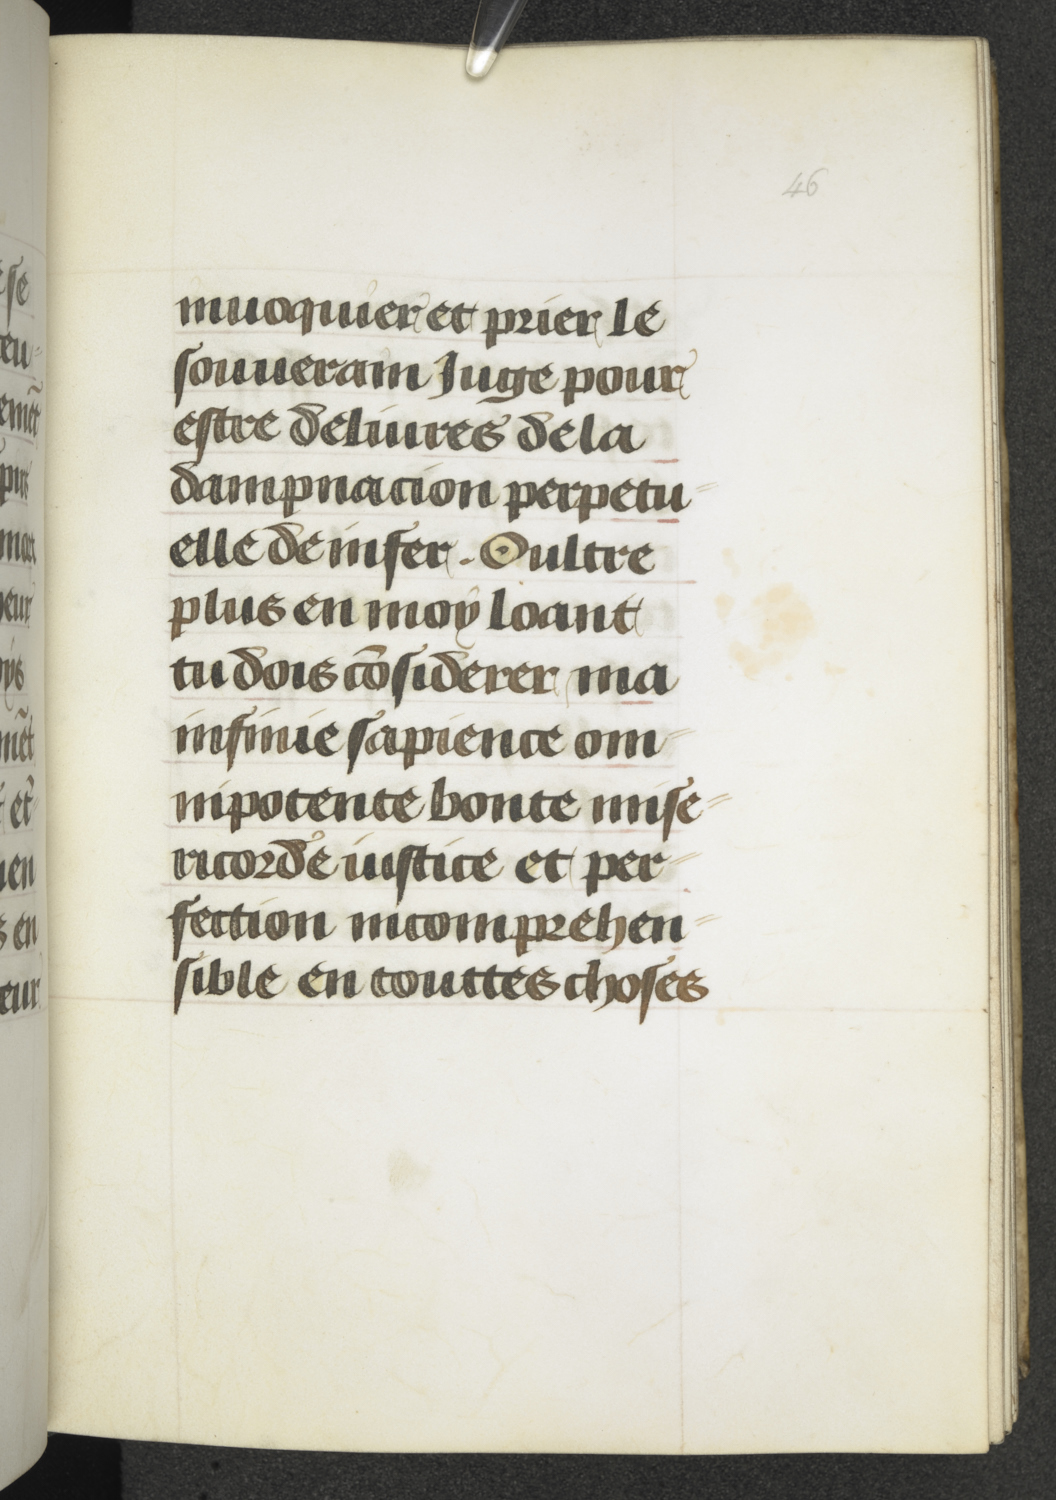 46
inuoquier et prier le
souuerain Juge pour
estre deliures de la
dampnacion perpetu-
elle de infer. Oultre
plus en moy loant
tu dois cõsiderer ma
infinie sapience om-
nipotente bonte mise-
ricorde iustice et per-
fection incomprehen-
sible en touttes choses